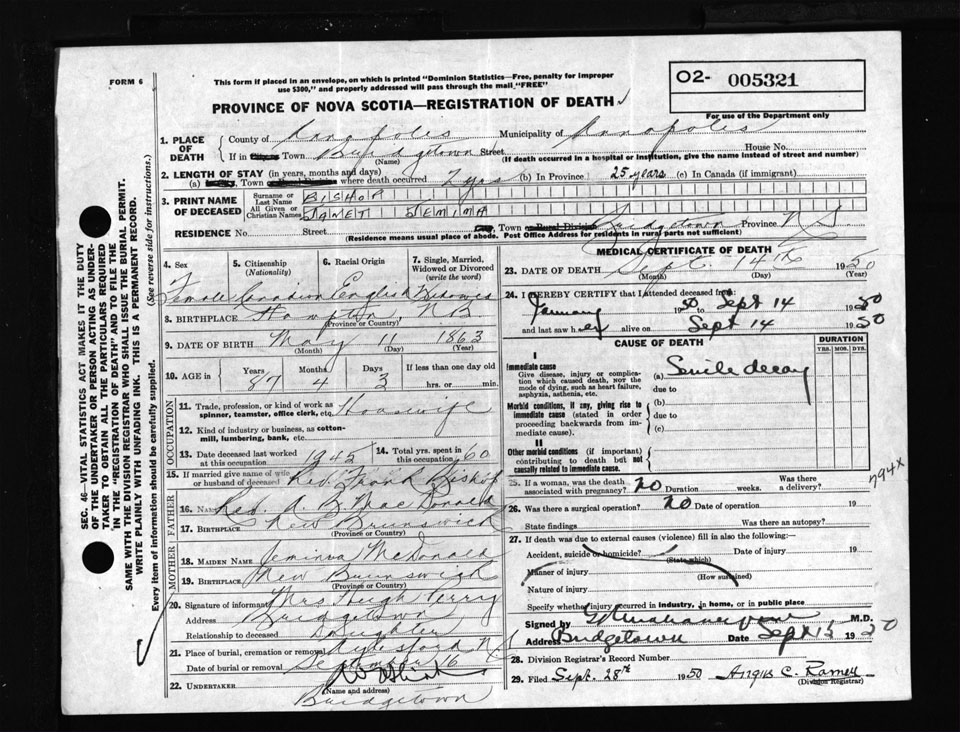 FORM 6
This form if placed in an envelope, on which is printed "Dominion Statistics—Free, penalty for improper
use $300," and properly addressed will pass through the mail "FREE"
O2- 005321
For use of the Department only
PROVINCE OF NOVA SCOTIA—REGISTRATION OF DEATH
SEC. 46—VITAL STATISTICS ACT MAKES IT THE DUTY
OF THE UNDERTAKER OR PERSON ACTING AS UNDER-
TAKER TO OBTAIN ALL THE PARTICULARS REQUIRED
IN THE "REGISTRATION OF DEATH" AND TO FILE THE
SAME WITH THE DIVISION REGISTRAR WHO SHALL ISSUE THE BURIAL PERMIT.
WRITE PLAINLY WITH UNFADING INK. THIS IS A PERMANENT RECORD.
Every item of information should be carefully supplied. (See reverse side for instructions.)
1. PLACE OF DEATH County of Annapoles Municipality of Annapoles
If in Town Bridgetown Street House No.
(Name) (If death occurred in a hospital or institution, give the name instead of street and number)
2. LENGTH OF STAY (in years, months and days)
(a) Town where death occurred 7 yrs (b) In Province 25 years (c) In Canada (if immigrant)
3. PRINT NAME OF DECEASED Surname or Last Name BISHOP
All Given or Christian Names JANET JEMIMA
RESIDENCE No. Street Town or Rural Division Bridgetown Province N S
(Residence means usual place of abode. Post Office Address for residents in rural parts not sufficient)
4. Sex Female
5. Citizenship (Nationality) Canadian
6. Racial Origin English
7. Single, Married, Widowed or Divorced (write the word) Widowed
8. BIRTHPLACE Hampton, N.B.
(Province or Country)
9. DATE OF BIRTH May 11 1863
(Month) (Day) (Year)
10. AGE in Years 87 Months 4 Days 3 If less than one day old
hrs. or min.
OCCUPATION
11. Trade, profession, or kind of work as
spinner, teamster, office clerk, etc. Housewife
12. Kind of industry or business, as cotton-
mill, lumbering, bank, etc.
13. Date deceased last worked at this occupation 1945 14. Total yrs. spent in this occupation 60
15. If married give name of wife or husband of deceased Rev. Frank Bishop
FATHER
16. Name Rev. A. B. MacDonald
17. Birthplace New Brunswick
(Province or Country)
MOTHER
18. MAIDEN NAME Jemima McDonald
19. BIRTHPLACE New Brunswick
(Province or Country)
20. Signature of informant Mrs Hugh Perry
Address Bridgetown
Relationship to deceased Daughter
21. Place of burial, cremation or removal Aylesford N S
Date of burial or removal September 16
22. UNDERTAKER
(Name and address)
Bridgetown
MEDICAL CERTIFICATE OF DEATH
23. DATE OF DEATH Sept. 14th 1950
(Month) (Day) (Year)
24. I HEREBY CERTIFY that I attended deceased from:
January 1950 Sept 14 1950
and last saw her alive on Sept 14 1950
CAUSE OF DEATH
DURATION
YRS. MOS. DYS.
I
Immediate cause
Give disease, injury or complica-
tion which caused death, not the
mode of dying, such as heart failure,
asphyxia, asthenia, etc.
(a) Senile decay
due to
Morbid conditions, if any, giving rise to
immediate cause (stated in order
proceeding backwards from im-
mediate cause).
(b)
due to
(c)
II
Other morbid conditions (if important)
contributing to death but not
causally related to immediate cause.
25. If a woman, was the death
associated with pregnancy? no Duration weeks. Was there
a delivery?
794X
26. Was there a surgical operation? no Date of operation 19
State findings Was there an autopsy?
27. If death was due to external causes (violence) fill in also the following:—
Accident, suicide or homicide? Date of injury 19
(State which)
Manner of injury
(How sustained)
Nature of injury
Specify whether injury occurred in industry, in home, or in public place
Signed by M.D.
Address Bridgetown Date Sept 15 1950
28. Division Registrar's Record Number
29. Filed Sept. 28th 1950 Angus C. Ramey
(Division Registrar)